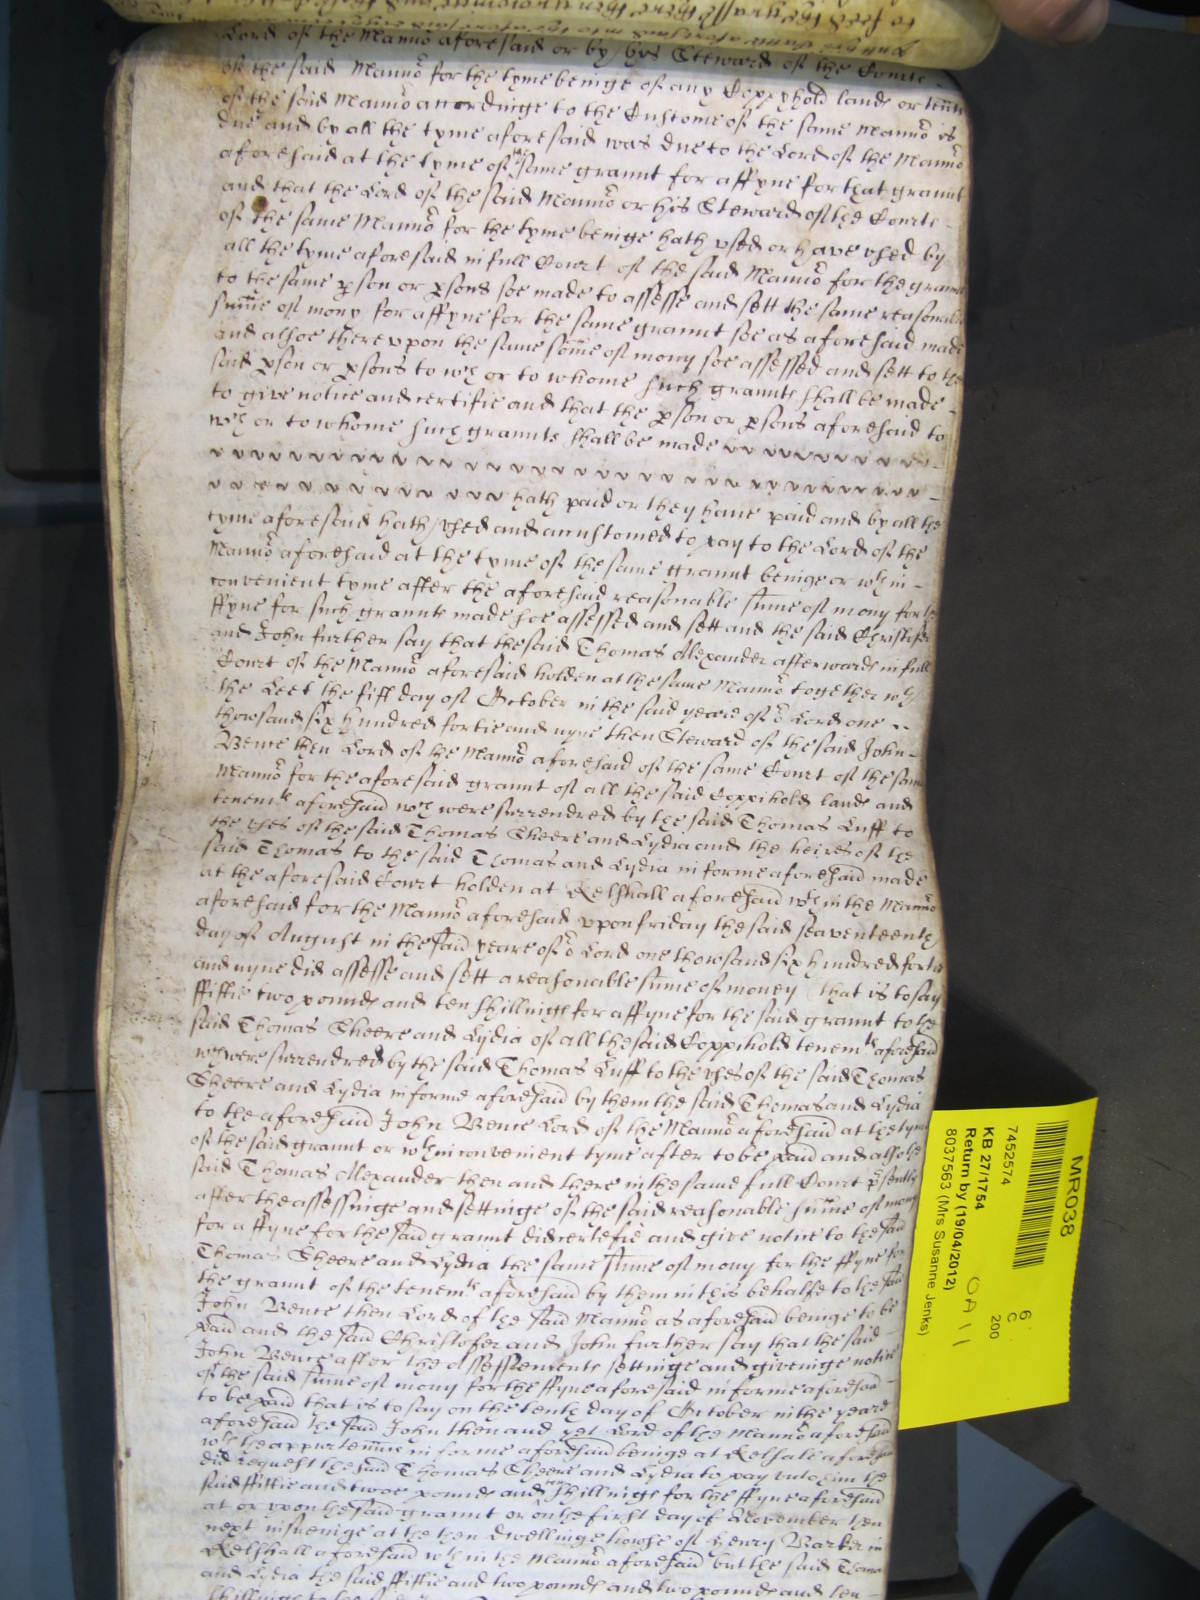 Lord of the Mannor aforesaid or by hys Steward of the Courte
of the said Mannor for the tyme beinge of any Coppyhold lands or tenements
of the said Mannor accordinge to the Custome of the same Mannor is
due and by all the tyme aforesaid was due to the Lord of the Mannor
aforesaid at the tyme of the same graunt for a ffyne for that graunt
and that the Lord of the said Mannor or his Steward of the Courte -
of the same Mannor for the tyme beinge hath vsed or have vsed by
all the tyme aforesaid in full Court of the said Mannor for the graunt
to the same pson or psons soe made to assesse and sett the same reasonable
sume of mony for a ffyne for the same graunt soe as aforesaid made
and alsoe therevpon the same some of mony soe assessed and sett to the
said pson or psons to wch or to whome such graunts shall be made -
to give notice and certifie and that the pson or psons aforesaid to
wch or to whome such graunts shall be made v v v v v v v v v v -
v v v v v v v v v v v v v v v v v v v v v v v v v v v v v v
v v v v v v v v v v v hath paid or they have paid and by all the
tyme aforesaid hath vsed and accustomed to pay to the Lord of the
Mannor aforesaid at the tyme of the same graunt beinge or wth in -
convenient tyme after the aforesaid reasonable sume of mony for the
ffyne for such graunts made soe assessed and sett and the said Christofer
and John further say that the said Thomas Alexander afterwards in full
Court of the Mannor aforesaid holden at the same Mannor together wth
the Leet the fift day of October in the said yeare of or Lord one --
thowsand six hundred fortie and nyne then Steward of the said John -
Bence then Lord of the Mannor aforesaid of the same Court of the same
Mannor for the aforesaid graunt of all the said Coppihold lands and
tenemts aforesaid wch were surrendred by the said Thomas Cuff to
the vses of the said Thomas Sheere and Lydia and the heires of the
said Thomas to the said Thomas and Lydia in forme aforesaid made
at the aforesaid Court holden at Kelshall aforesaid wth in the Mannor
aforesaid for the Mannor aforesaid vpon friday the said seaventeenth
day of August in the said yeare of or Lord one thowsand six hundred fortie
and nyne did assesse and sett a reasonable sume of money that is to say
ffiftie two pounds and ten shillings for a ffyne for the said graunt to the
said Thomas Sheere and Lydia of all the said Coppihold tenemts aforesaid
wch were surrendred by the said Thomas Cuff to the vses of the said Thomas
Sheere and Lydia in forme aforesaid by them the said Thomas and Lydia
to the aforesaid John Bence Lord of the Mannor aforesaid at the tyme
of the said graunt or wth in convenient tyme after to be paid and also the
said Thomas Alexander then and there in the same full Court psently
after the assessinge and settinge of the said reasonable sume of mony
for a ffyne for the said graunt did certefie and give notice to the said
Thomas Sheere and Lydia the same sume of mony for the ffyne for
the graunt of the tenemts aforesaid by them in this behalfe to the said
John Bence then Lord of the said Mannor as aforesaid beinge to be
paid and the said Christofer and John further say that the said -
John Bence after the assessements settinge and givenige notice
of the said sume of mony for the ffyne aforesaid in forme aforesaid
to be paid that is to say on the tenth day of October in the yeare
aforesaid the said John then and yet Lord of the Mannor aforesaid
wth the appurtenncs in forme aforesaid beinge at Kelsale aforesaid
did request the said Thomas Sheere and Lydia to pay vnto him the
said ffiftie and twoe pounds and ten shillings for the ffyne aforesaid
at or vpon the said graunt or on the first day of November then
next insueinge at the then dwellinge howse of Henry Barker in
Kelshall aforesaid wth in the Mannor aforesaid but the said Thomas
and Lydia the said ffiftie and two pounds and two pounds and ten -
MR038
7452574
6
C
200
KB 27/1754
Return by (19/04/2012)
8037563 (Mrs Susanne Jenks)